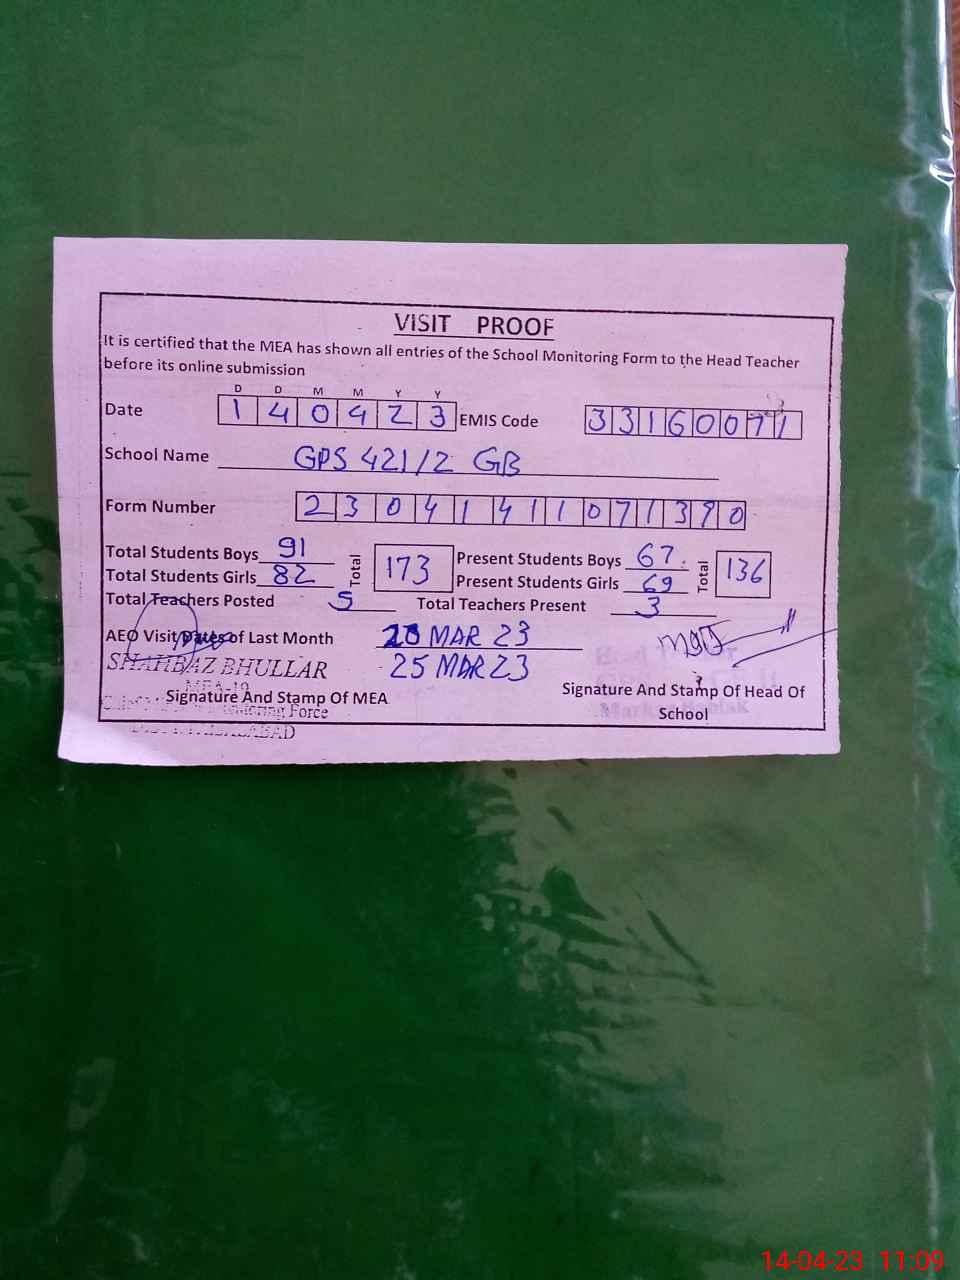 VISIT PROOF
It is certified that the MEA has shown all entries of the School Monitoring Form to the Head Teacher
before its online submission
D D M M Y Y
Date 1 4 0 4 2 3 EMIS Code 3 3 1 6 0 0 7 1
School Name GPS 421/2 GB
Form Number 2 3 0 4 1 4 1 1 0 7 1 3 9 0
Total Students Boys 91 Total 173 Present Students Boys 67. Total 136
Total Students Girls 82 Present Students Girls 69
Total Teachers Posted 5 Total Teachers Present 3
AEO Visit Dates of Last Month MAR 23
SHAHBAZ BHULLAR 25 MAR 23
MEA-19
Signature And Stamp Of MEA Signature And Stamp Of Head Of
School
Monitoring Force
FAISALABAD
14-04-23 11:09